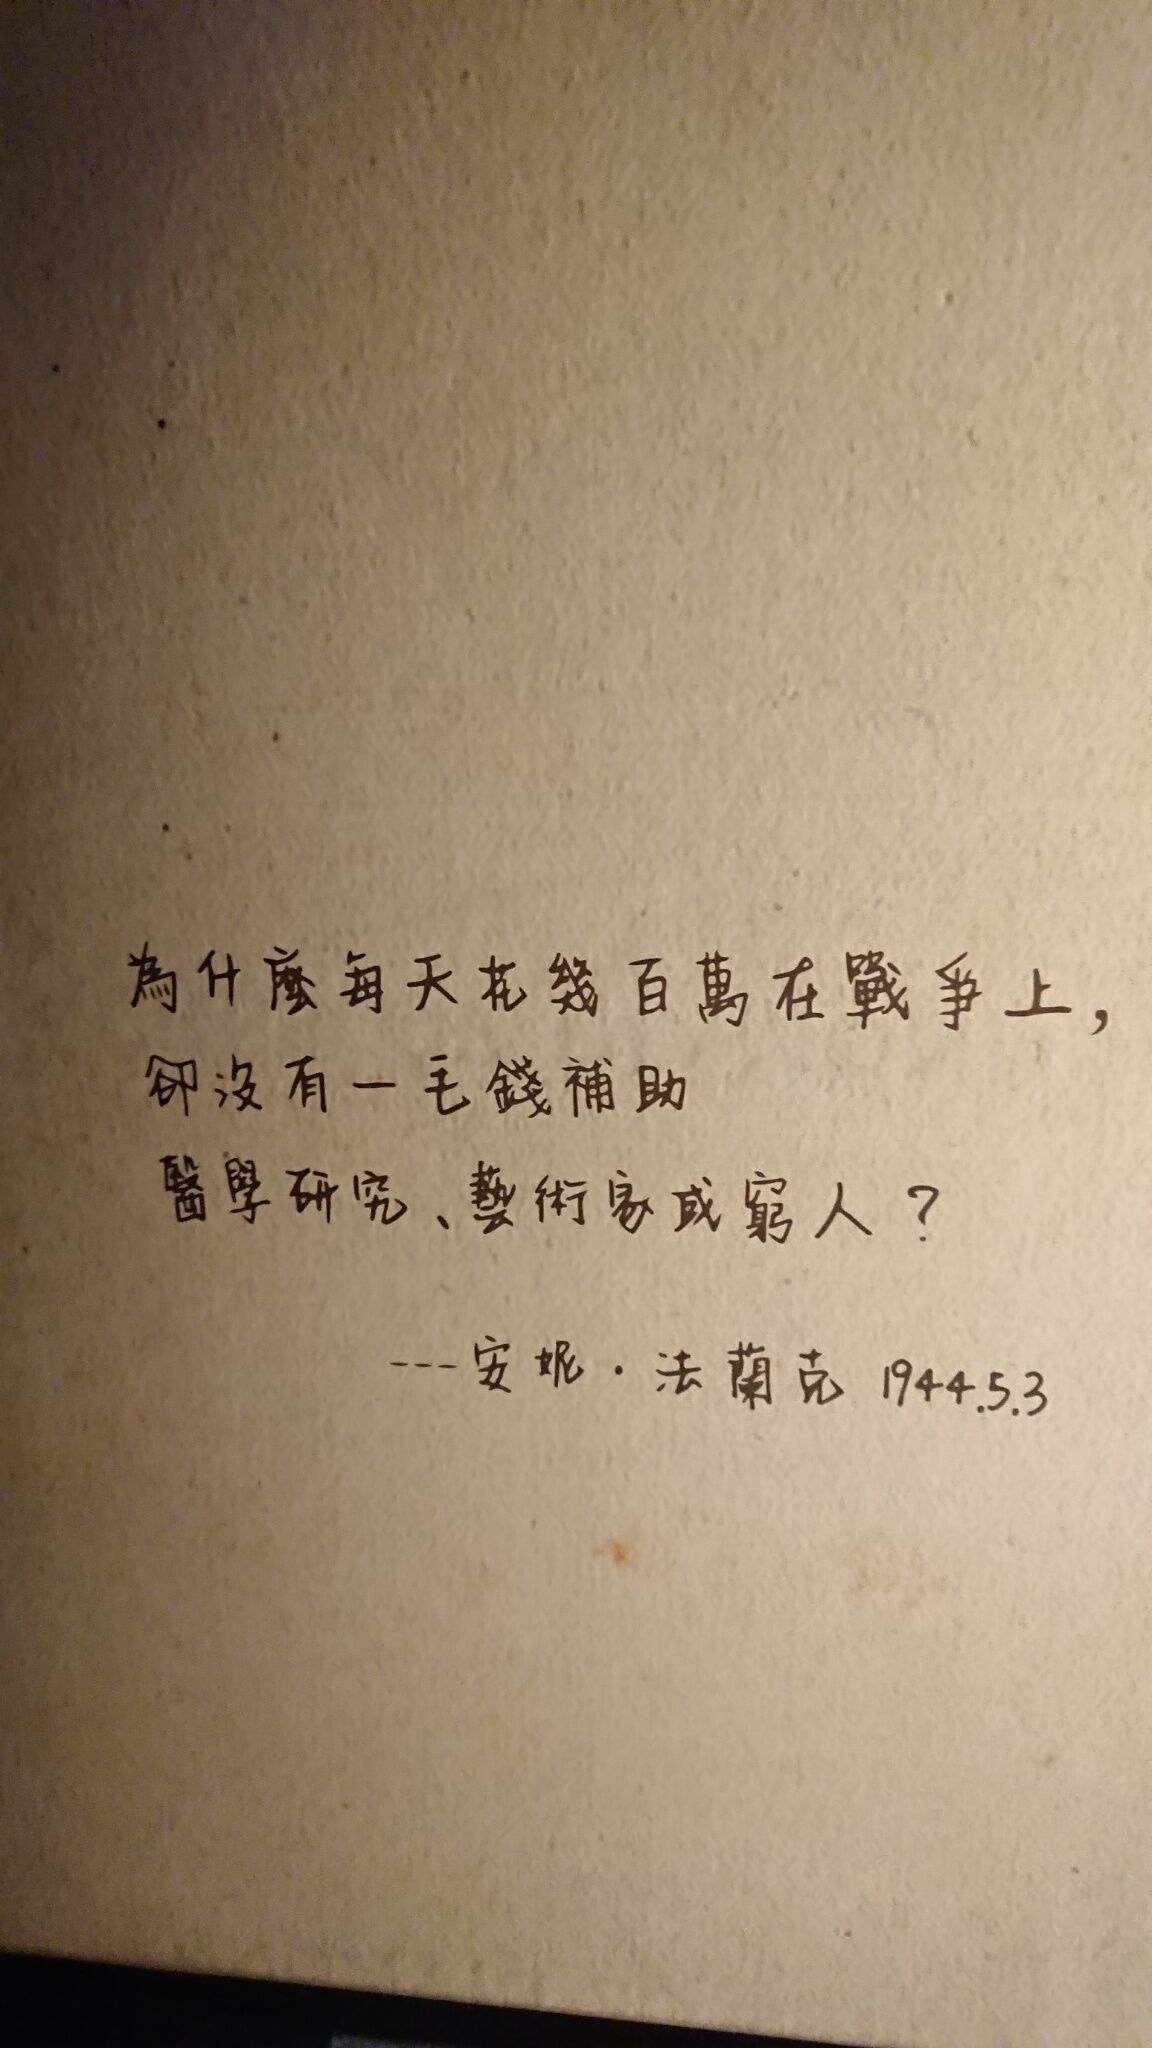 為什麼每天花幾百萬在戰爭上，
卻沒有一毛錢補助
醫學研究、藝術家或窮人？
---安妮·法蘭克 1944.5.3